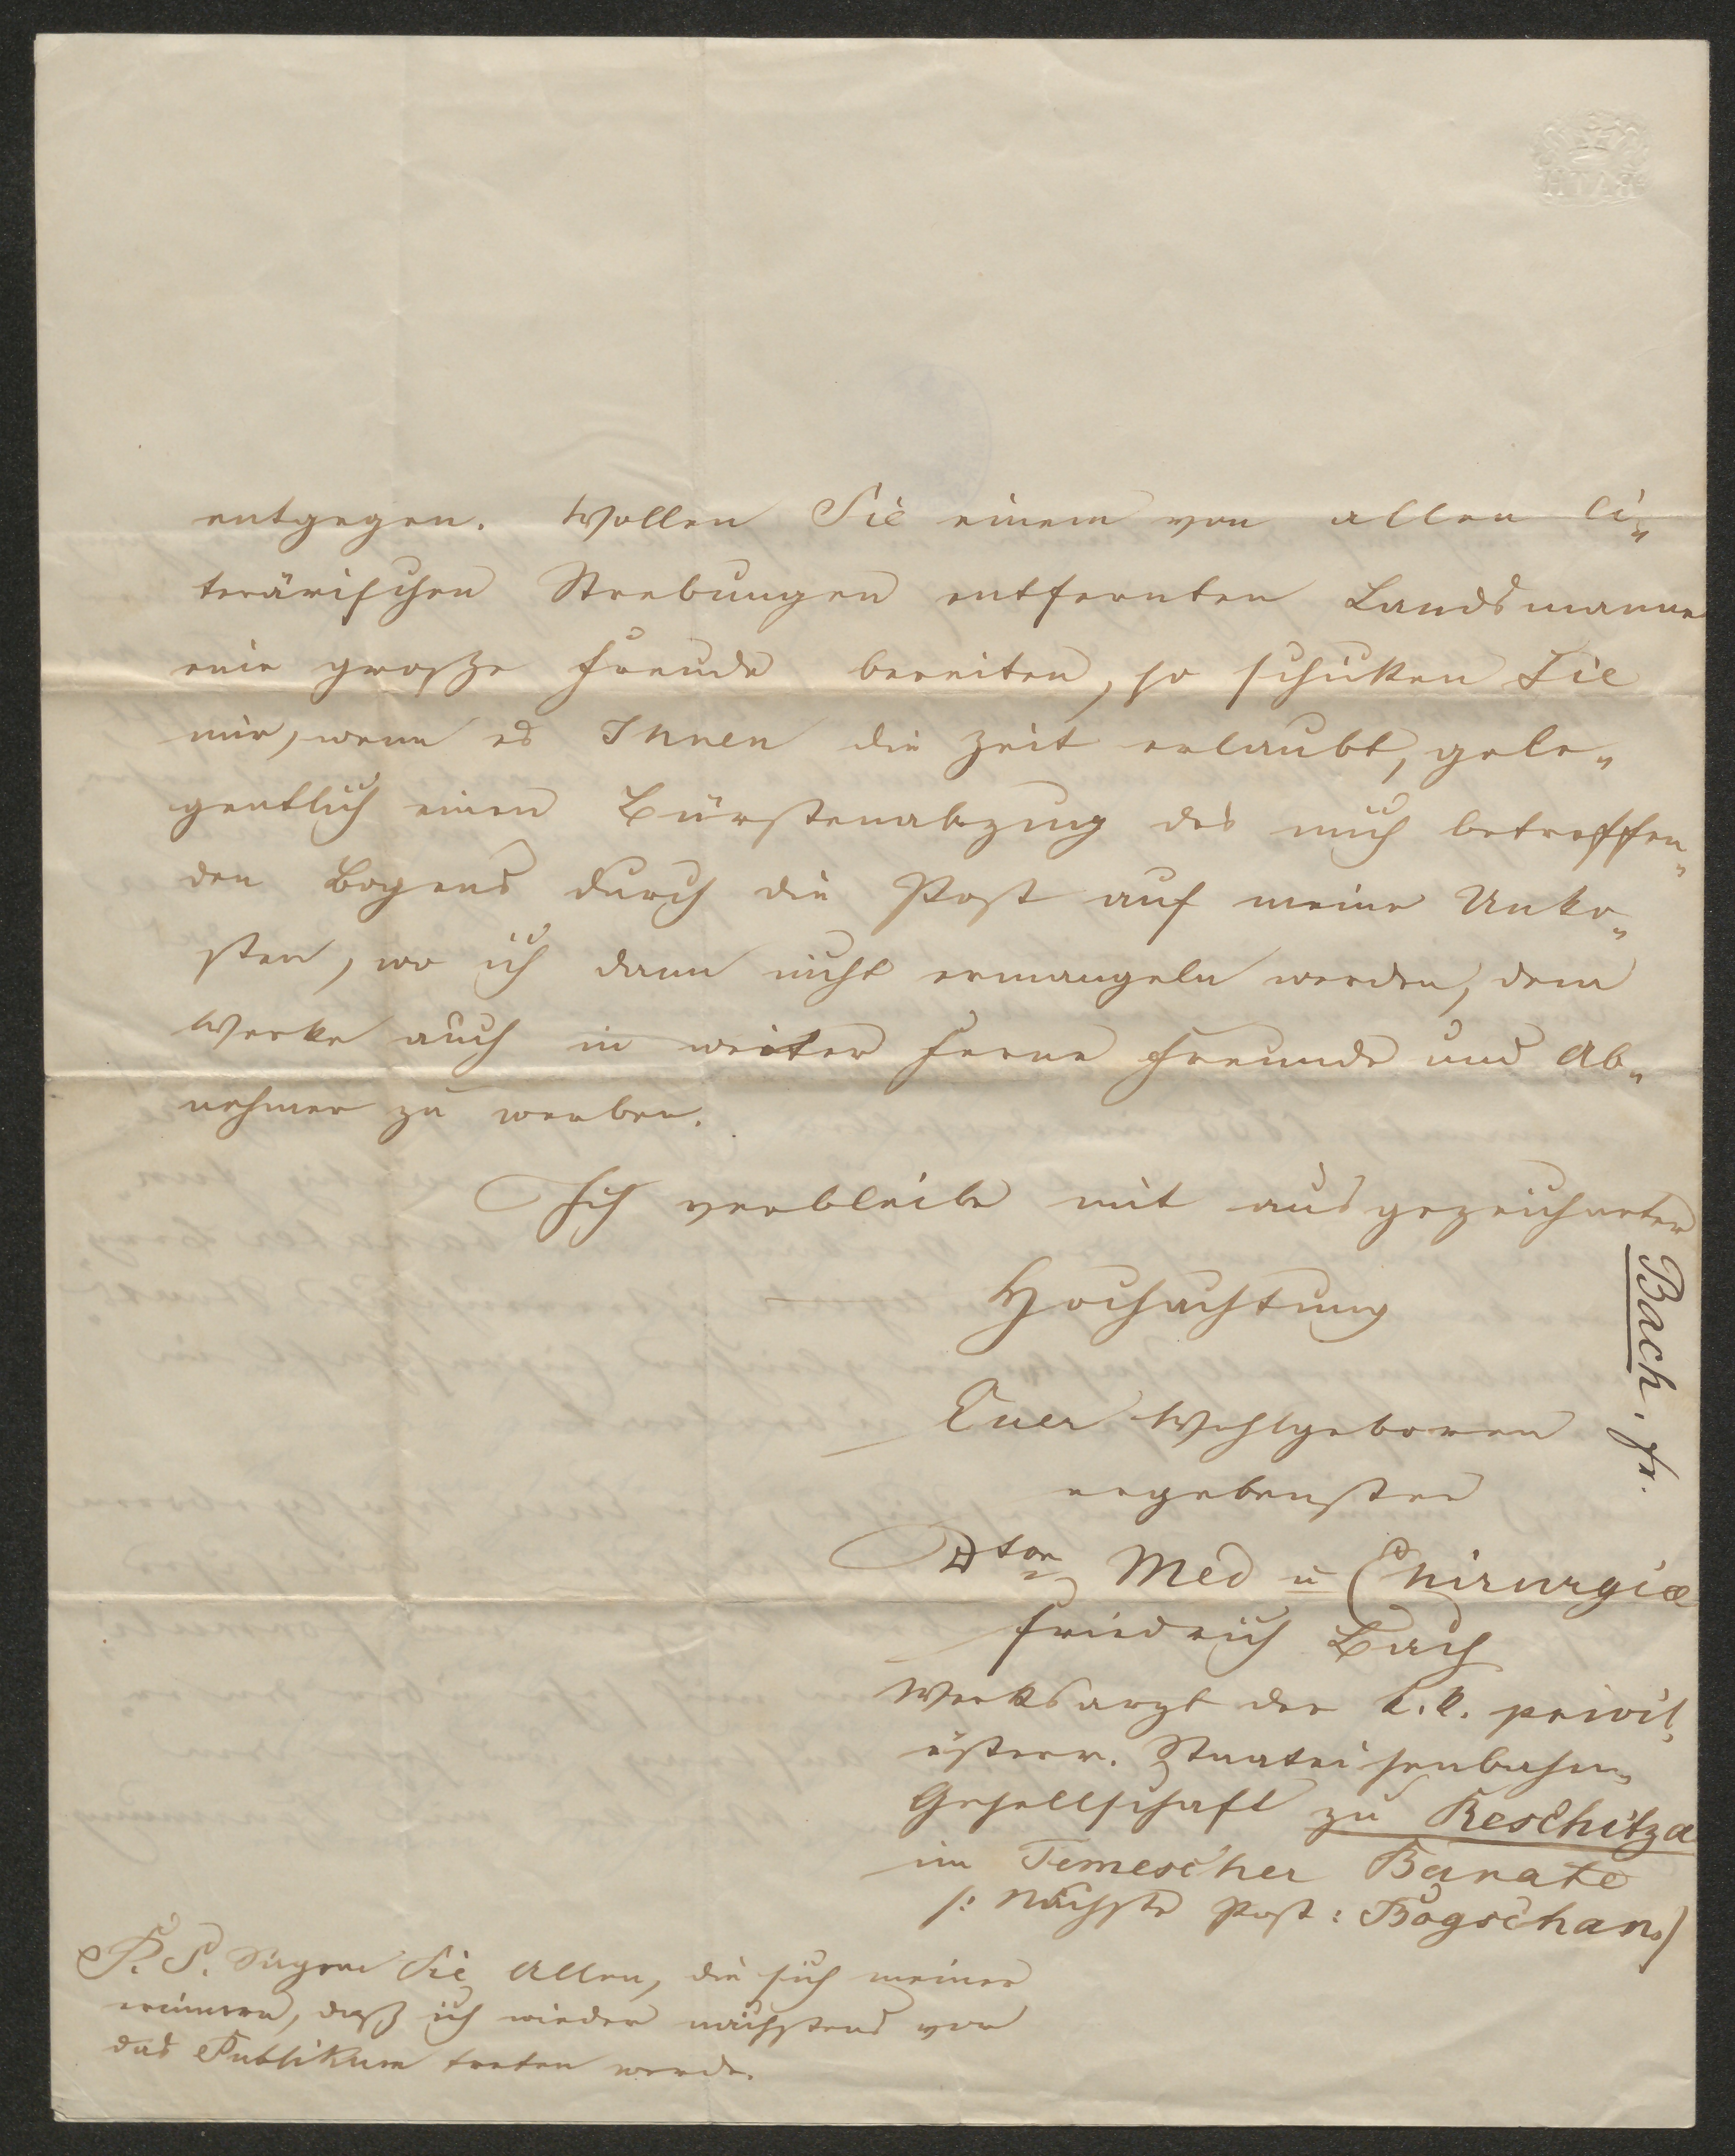 entgegen. Wollen Sie einem von allen li-
terärischen Strebungen entfernten Landsmanne
eine große Freude bereiten, so schicken Sie
mir, wenn es Ihnen die Zeit erlaubt, gele-
gentlich einen Bürstenabzug des mich betreffen-
den Bogens durch die Post auf meine Unko-
sten, wo ich dann nicht ermangeln werden, dem
Werke auch in weiter Ferne Freunde und Ab-
nehmer zu werben.
Ich verbleibe mit ausgezeichneter
Hochachtung
Euer Wohlgeboren
ergebenster
Dtor Med u Chirurgiæ
Friedrich Bach
Werksarzt der k.k. privil.
österr. Staatseisenbahn-
Gesellschaft zu Reschitza
im Temescher Banate
/: Nächste Post: Bogschan./
P.S. Sagen Sie Allen, die sich meiner
erinnern, daß ich wieder nächstens vor
das Publikum treten werde.
Bach, Fr.
BATH